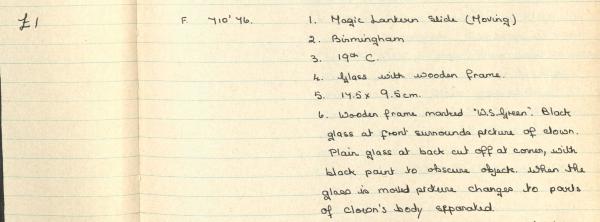 £1 F. 710'76. 1. Magic Lantern Slide (Moving)
2. Birmingham
3. 19th C.
4. Glass with wooden frame.
5. 17.5 x 9.5cm.
6. Wooden frame marked "W.S. Green". Black
glass at front surrounds picture of clown.
Plain glass at back cut off at corner, with
black paint to obscure object. When the
glass is moved picture changes to parts
of clown's body separated.